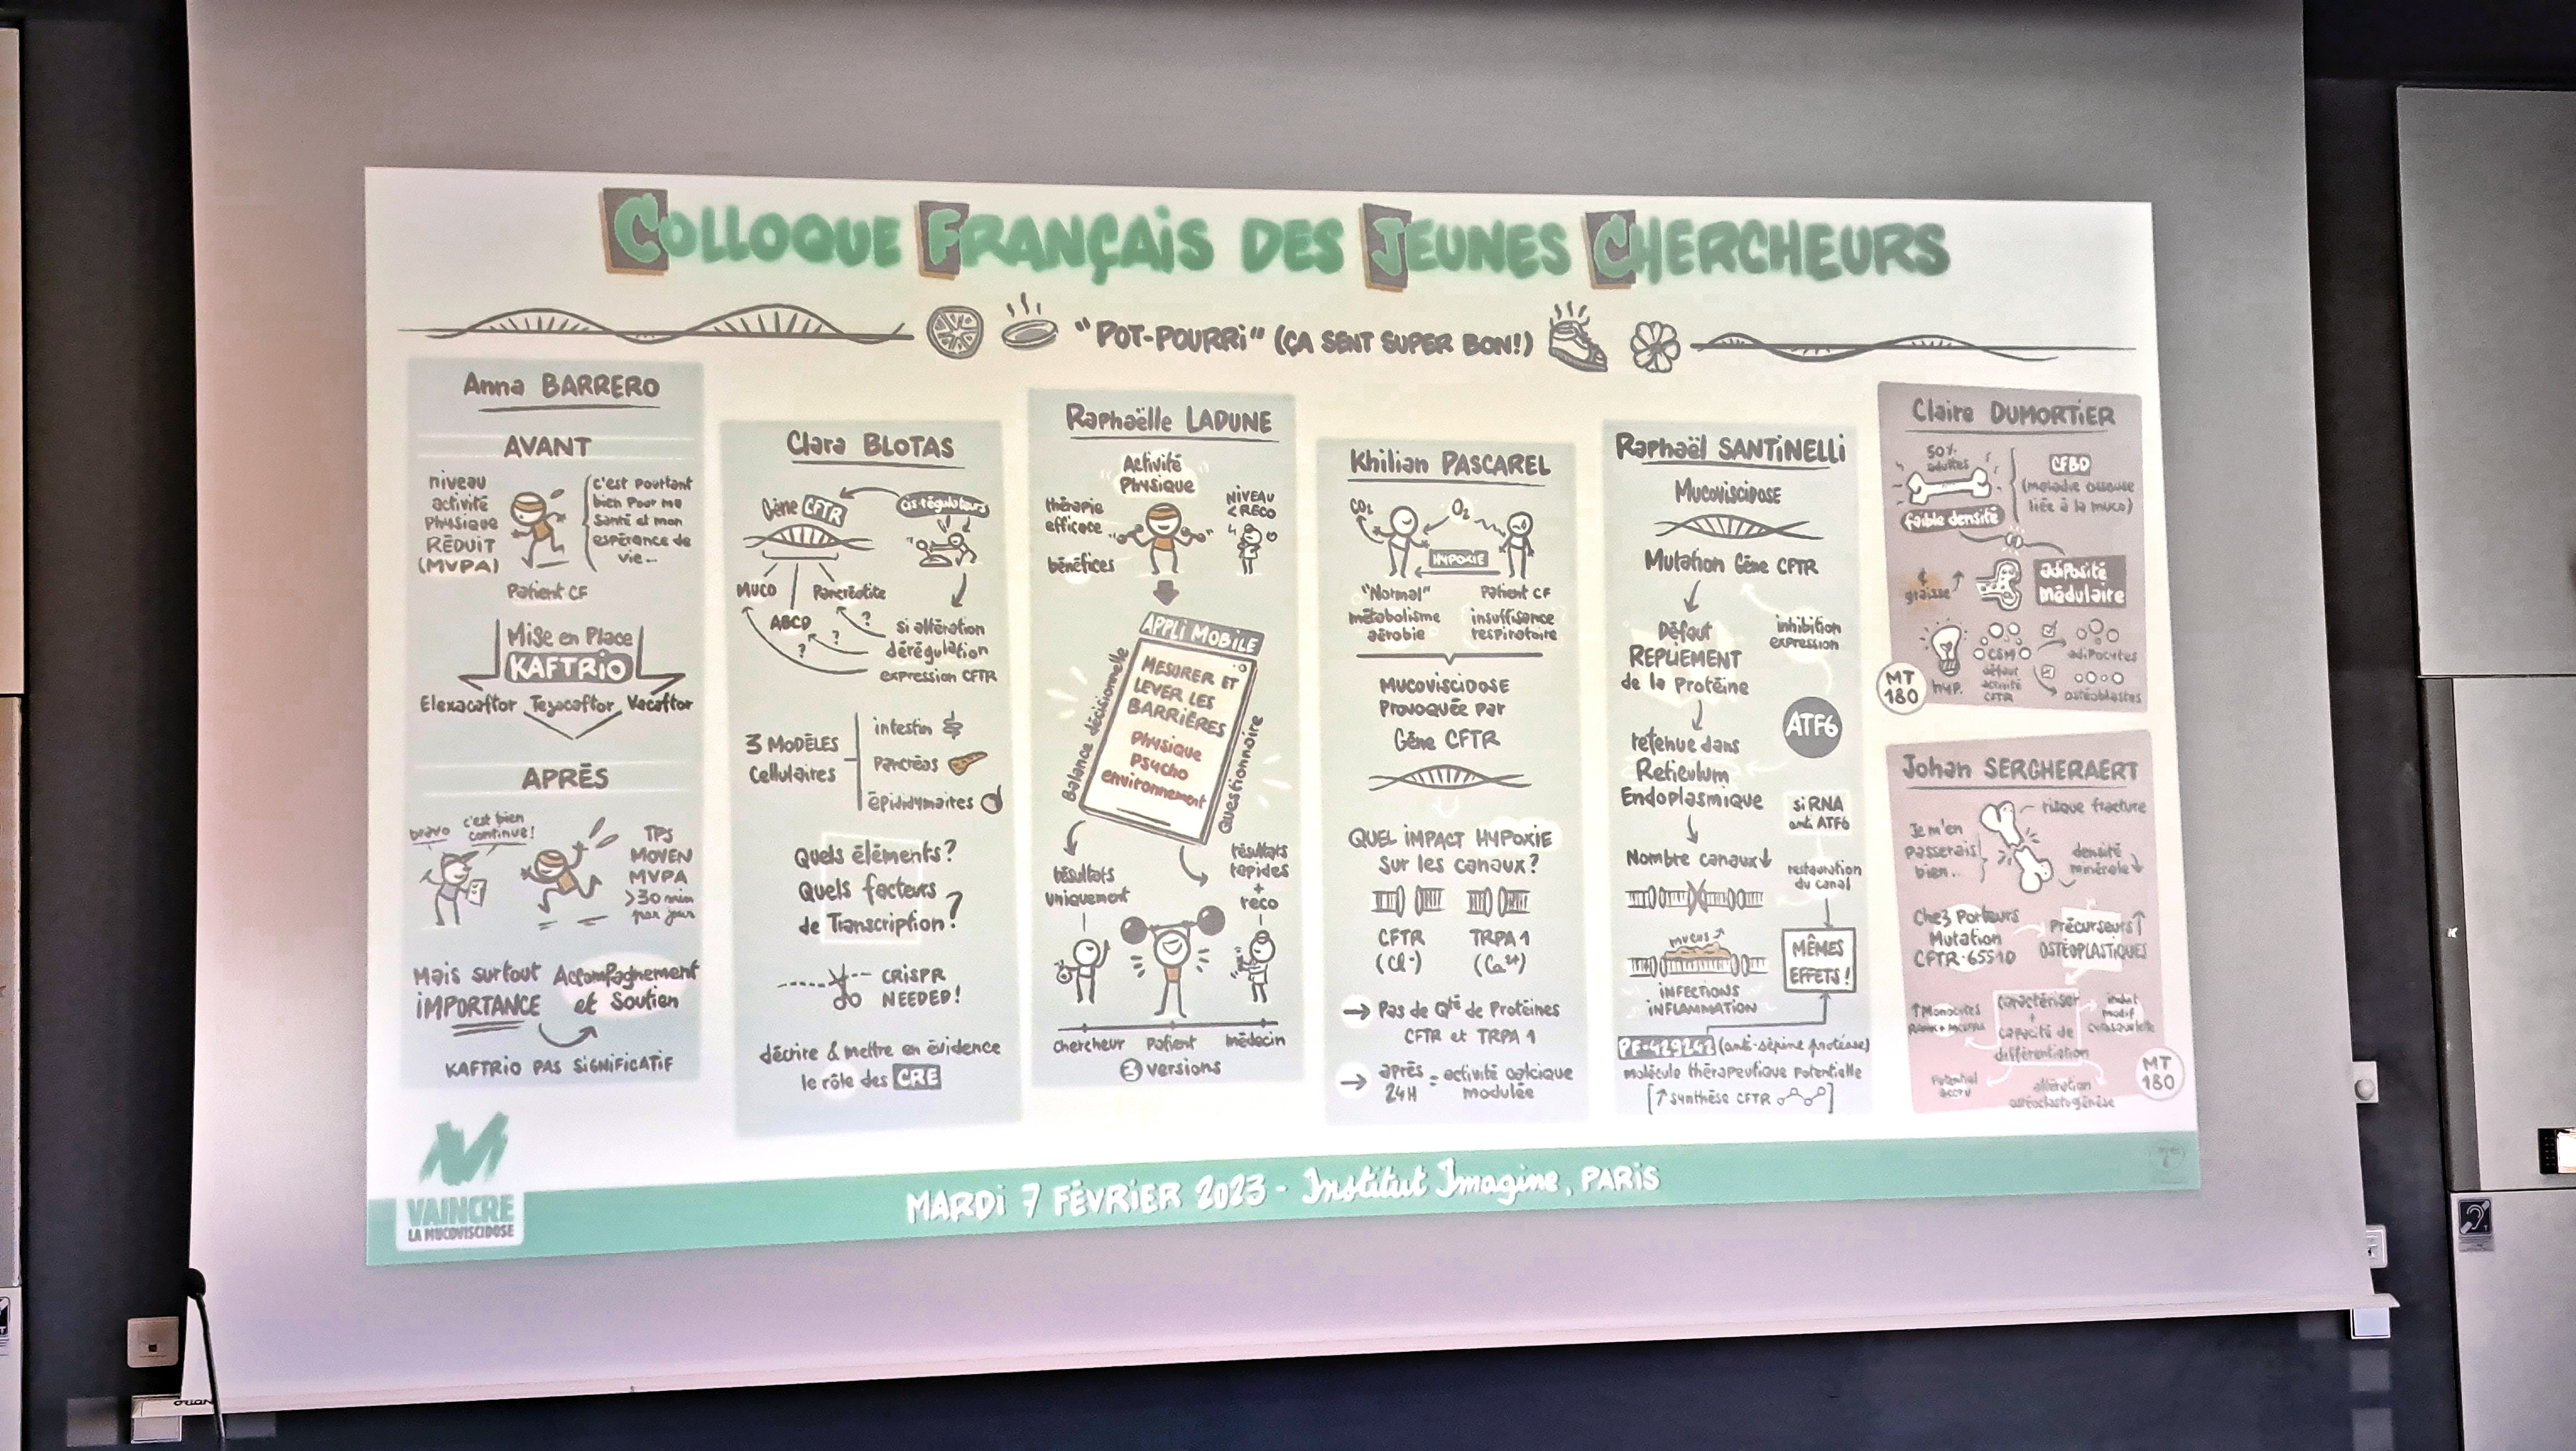 COLLOQUE FRANÇAIS DES JEUNES CHERCHEURS
"POT-POURRI" (ÇA SENT SUPER BON!)
Anna BARRERO
AVANT
niveau
activité
Physique
RÉDUIT
(MVPA)
c'est Pourtant
bien Pour ma
Santé et mon
espérance de
vie...
Patient CF
Mise en Place
KAFTRIO
Elexacaftor Tezacaftor Vacaftor
APRÈS
bravo
c'est bien
continue!
TPS
MOYEN
MVPA
>30 min
par jour
Mais surtout Accompagnement
IMPORTANCE et Soutien
KAFTRIO PAS SIGNIFICATIF
Clara BLOTAS
Gène CFTR
cis régulateurs
MUCO
ABCD
Pancréatite
? ? ?
si altération
dérégulation
expression CFTR
3 MODÈLES
Cellulaires
intestin
Pancréas
épididymaires
Quels éléments?
Quels facteurs
de Transcription?
CRISPR
NEEDED!
décrire & mettre en évidence
le rôle des CRE
Raphaëlle LADUNE
Activité
Physique
thérapie
efficace
bénéfices
NIVEAU
< RECO
APPLI MOBILE
MESURER ET
LEVER LES
BARRIÈRES
Physique
Psycho
environnement
Balance décisionnelle
Questionnaire
résultats
uniquement
résultats
rapides
+
reco
chercheur Patient médecin
3 versions
Khilian PASCAREL
CO2
O2
HYPOXIE
"Normal"
métabolisme
aérobie
Patient CF
insuffisance
respiratoire
MUCOVISCIDOSE
Provoquée Par
Gène CFTR
QUEL IMPACT HYPOXIE
Sur les canaux?
CFTR
(Cl-)
TRPA1
(Ca2+)
→ Pas de Qté de Protéines
CFTR et TRPA 1
→ après 24H = activité calcique
modulée
Raphaël SANTINELLI
Mucoviscidose
Mutation Gène CFTR
Défaut
REPLIEMENT
de la Protéine
inhibition
expression
ATF6
retenue dans
Reticulum
Endoplasmique
siRNA
anti ATF6
Nombre canaux↓
restauration
du canal
mucus ↗
INFECTIONS
INFLAMMATION
MÊMES
EFFETS!
PF-429242 (anti-sérine protéase)
molécule thérapeutique Potentielle
[↑ synthèse CFTR ]
Claire DUMORTIER
50%
adultes
faible densité
CFBD
(maladie osseuse
liée à la muco)
graisse
adiposité
médulaire
MT
180
hyp.
CSM
défaut
activité
CFTR
adipocytes
ostéoblastes
Johan SERGHERAERT
risque fracture
Je m'en
Passerais
bien..
densité
minérale↓
Chez Porteurs
Mutation
CFTR-
Précurseurs↑
OSTÉOPLASTIQUES
↑ Monocytes
caractériser
+
capacité de
différentiation
induit
modif
Potentiel
accru
altération
ostéoclastogénèse
MT
180
VAINCRE
LA MUCOVISCIDOSE
MARDI 7 FÉVRIER 2023 - Institut Imagine, PARIS